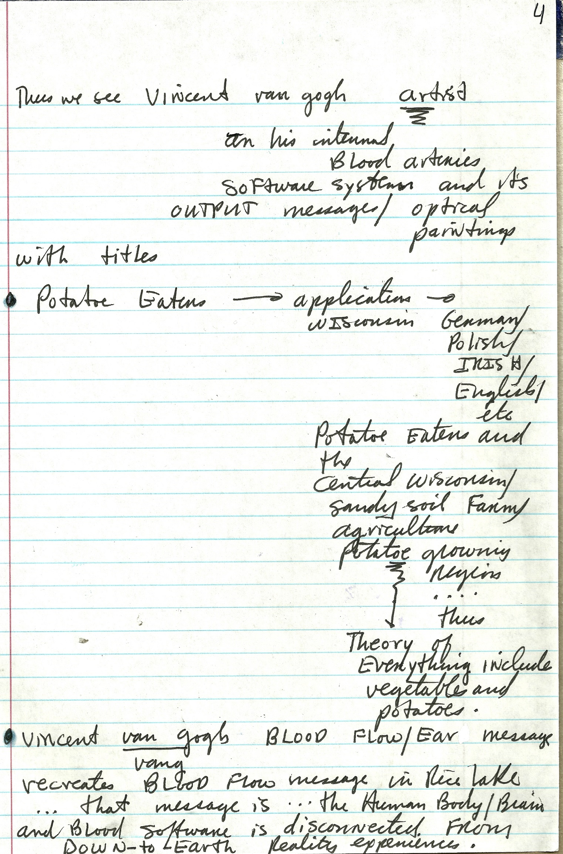 4
Thus we see Vincent van gogh artist
in his internal
Blood arteries
software system and its
OUTPUT messages/ optical
paintings
with titles
• Potatoe Eaters → application →
WISconsin German/
Polish/
IRISH/
English/
etc
Potatoe Eaters and
the
Central Wisconsin/
sandy soil Farm/
agriculture
potatoe growing
Region
....
thus
Theory of
Everything include
vegetables and
potatoes.
• Vincent van gogh BLOOD FLOW/EAR message
vang
recreates BLOOD Flow message in Rice Lake
... that message is ... the Human Body/Brain
and Blood software is disconnected FROM
DOWN-to-Earth Reality experience.